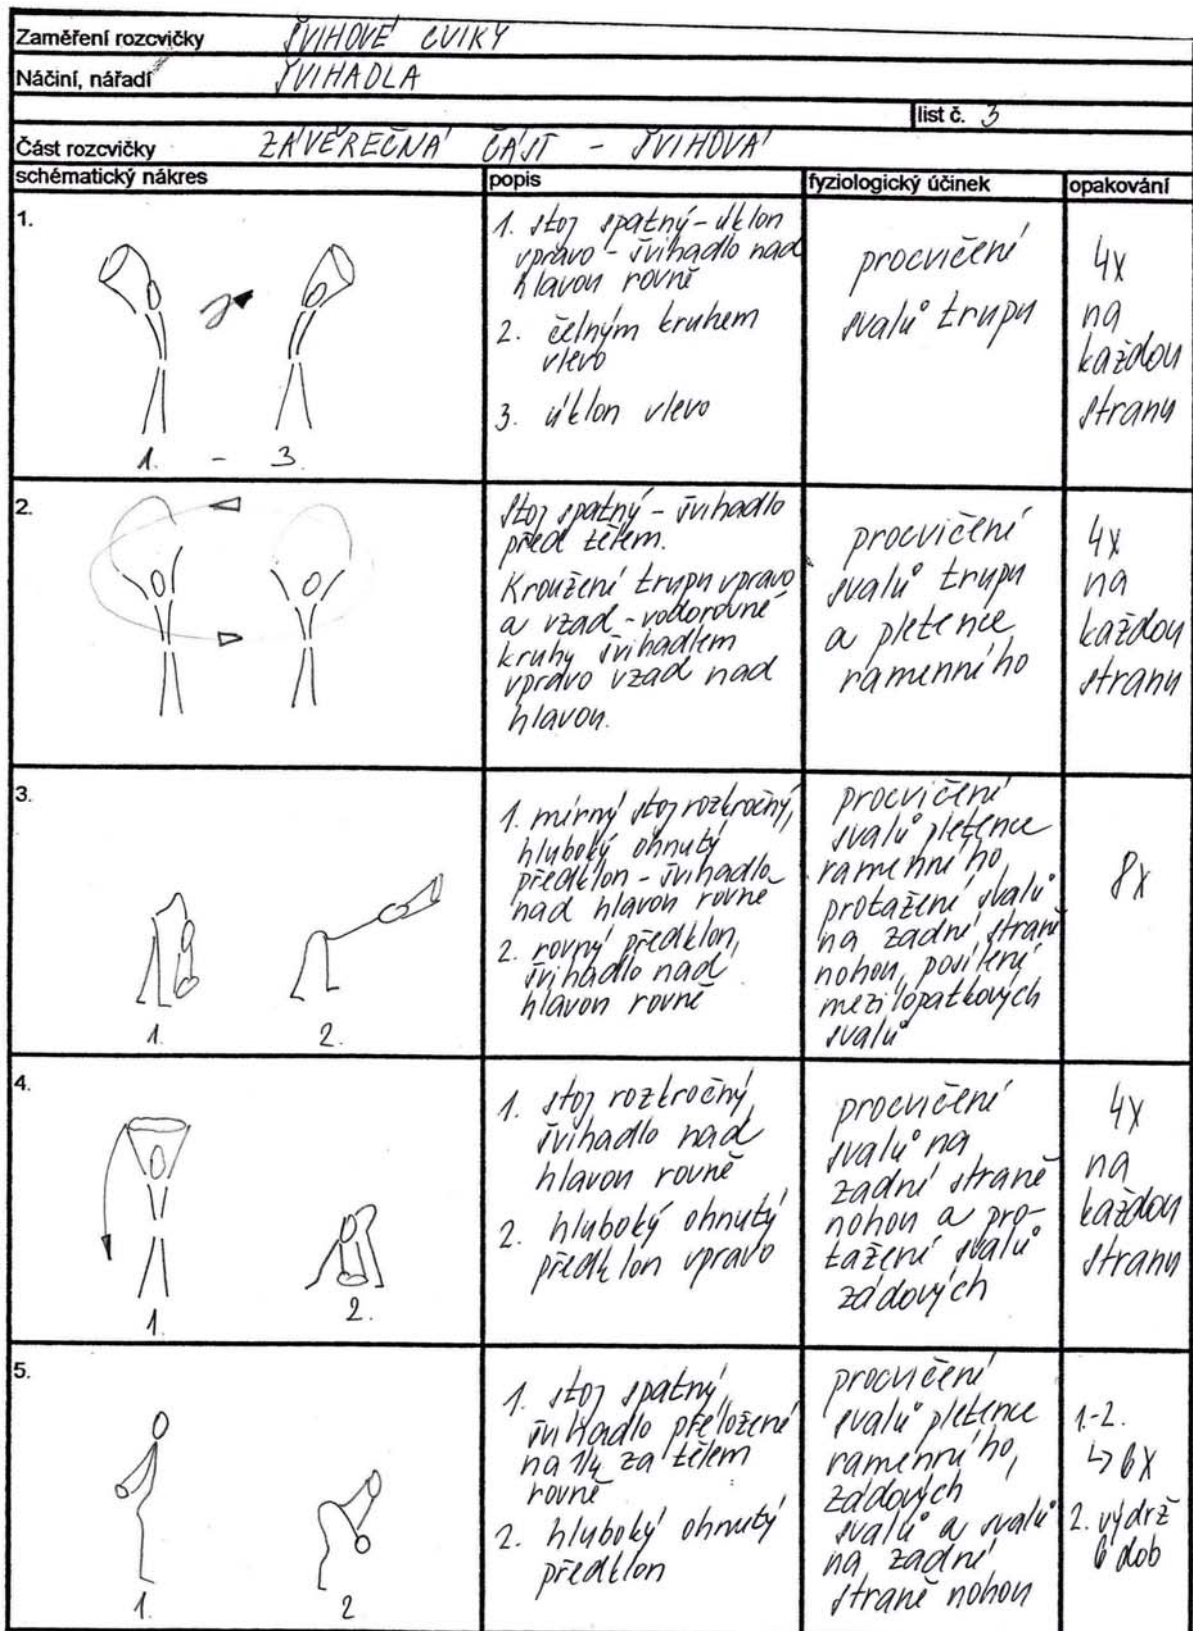 Zaměření rozcvičky ŠVIHOVÉ CVIKY
Náčiní, nářadí ŠVIHADLA
list č. 3
Část rozcvičky ZÁVĚREČNÁ ČÁST - ŠVIHOVÁ
schématický nákres popis fyziologický účinek opakování
1.
1. - 3.
1. stoj spatný - úklon
vpravo - švihadlo nad
hlavou rovně
2. čelným kruhem
vlevo
3. úklon vlevo
procvičení
svalů trupu
4x
na
každou
stranu
2.
stoj spatný - švihadlo
před tělem.
Kroužení trupu vpravo
a vzad - vodorovné
kruhy švihadlem
vpravo vzad nad
hlavou.
procvičení
svalů trupu
a pletence
ramenního
4x
na
každou
stranu
3.
1. 2.
1. mírný stoj rozkročný,
hluboký ohnutý
předklon - švihadlo
nad hlavou rovně
2. rovný předklon,
švihadlo nad
hlavou rovně
procvičení
svalů pletence
ramenního,
protažení svalů
na zadní straně
nohou, posílení
mezilopatkových
svalů
8x
4.
1. 2.
1. stoj rozkročný,
švihadlo nad
hlavou rovně
2. hluboký ohnutý
předklon vpravo
procvičení
svalů na
zadní straně
nohou a pro-
tažení svalů
zádových
4x
na
každou
stranu
5.
1. 2
1. stoj spatný,
švihadlo přeložené
na 1/4 za tělem
rovně
2. hluboký ohnutý
předklon
procvičení
svalů pletence
ramenního,
zádových
svalů a svalů
na zadní
straně nohou
1.-2.
↳ 6x
2. výdrž
6 dob